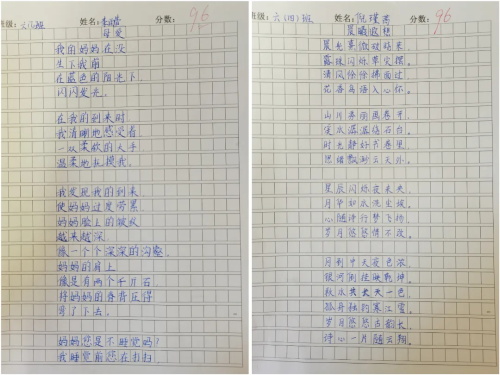 班级：六(1)班 姓名： 分数：96
母爱
我的妈妈在没
生下我前
在蓝色的阳光下
闪闪发光。
在我的到来时
我清晰地感受着
一双柔软的大手
温柔地抚摸我。
我发现我的到来
使妈妈过度劳累
妈妈脸上的皱纹
越来越深
像一个个深深的沟壑
妈妈的肩上
像是有两个千斤石
将妈妈的脊背压得
弯了下去。
妈妈您是不睡觉吗！
我睡觉前您在打扫
班级：六（四）班 姓名： 分数：96
晨曦
晨光熹微破晓来，
露珠闪烁草尖摆。
清风徐徐拂面过，
花香鸟语入心怀。
山川秀丽画卷开，
溪水潺潺绕石台。
时光静好书卷里，
思绪飘渺云天外。
星辰闪烁夜未央，
月华如水洗尘埃。
心随诗行梦飞扬，
岁月悠悠情不改。
月到中天夜色浓，
银河倒挂映乾坤。
秋水共长天一色，
孤舟独钓寒江雪。
岁月悠悠古韵长，
诗心一片随云翔。